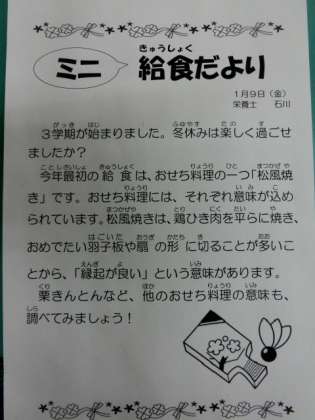 ミニ
給食だより
1月9日(金)
栄養士 石川
3学期が始まりました。冬休みは楽しく過ごせ
ましたか?
今年最初の給食は、おせち料理の一つ「松風焼
き」です。おせち料理には、それぞれ意味が込め
られています。松風焼きは、鶏ひき肉を平らに焼き、
おめでたい羽子板や扇の形に切ることが多いこ
とから、「縁起が良い」という意味があります。
栗きんとんなど、他のおせち料理の意味も、
調べてみましょう!